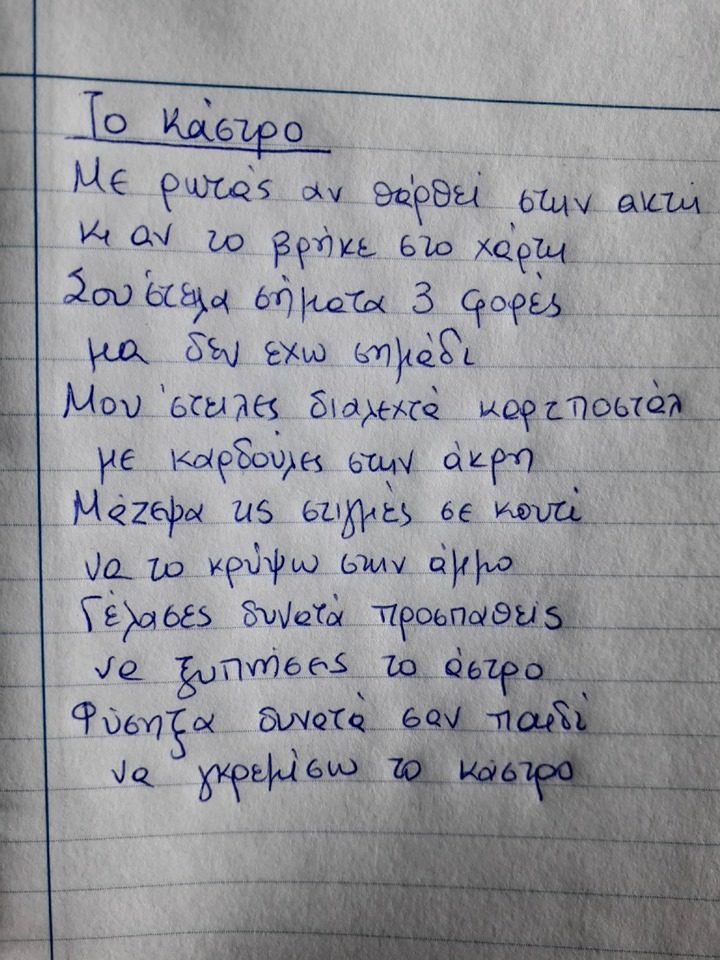 Το κάστρο
Με ρωτάς αν θάρθει στην ακτή
κι αν το βρήκε στο χάρτη
Σου 'στελα σήματα 3 φορές
μα δεν έχω σημάδι
Μου 'στειλες διαλεχτά καρτποστάλ
με καρδούλες στην άκρη
Μάζεψα τις στιγμές σε κουτί
να το κρύψω στην άμμο
Γέλασες δυνατά προσπαθείς
να ξυπνήσεις το άστρο
Φύσηξα δυνατά σαν παιδί
να γκρεμίσω το κάστρο